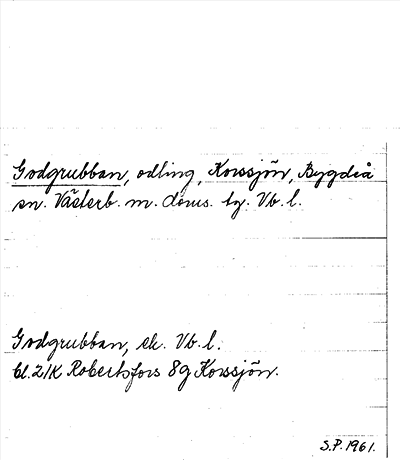 Godgrubban, odling, Korssjön, Bygdeå
sn. Västerb. m. doms. tg. Vb. l.
Godgrubban, ek. Vb. l.
bl. 21K Robertsfors 8g Korssjön.
S.P. 1961.